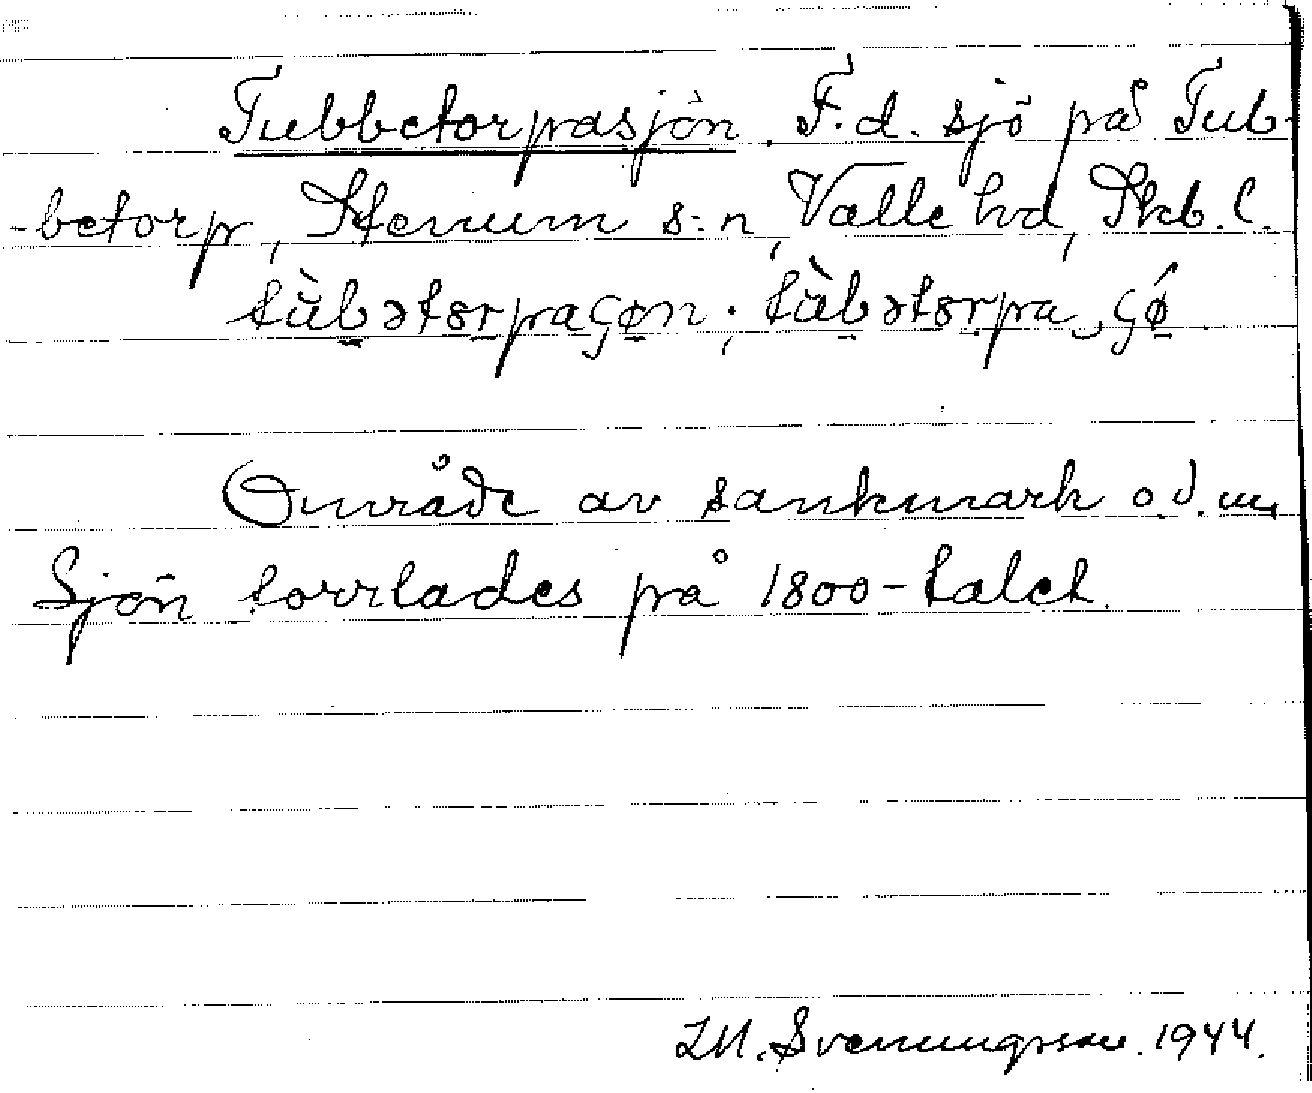 Tubbetorpasjön. F.d. sjö på Tub-
-betorp, Stenum s:n, Valle hd, Skb. l.
tùbətɔrpaçøn; tùbətɔrpa çǿ
Område av sankmark o.d.
Sjön torrlades på 1800-talet.
Svenungsson. 1944.